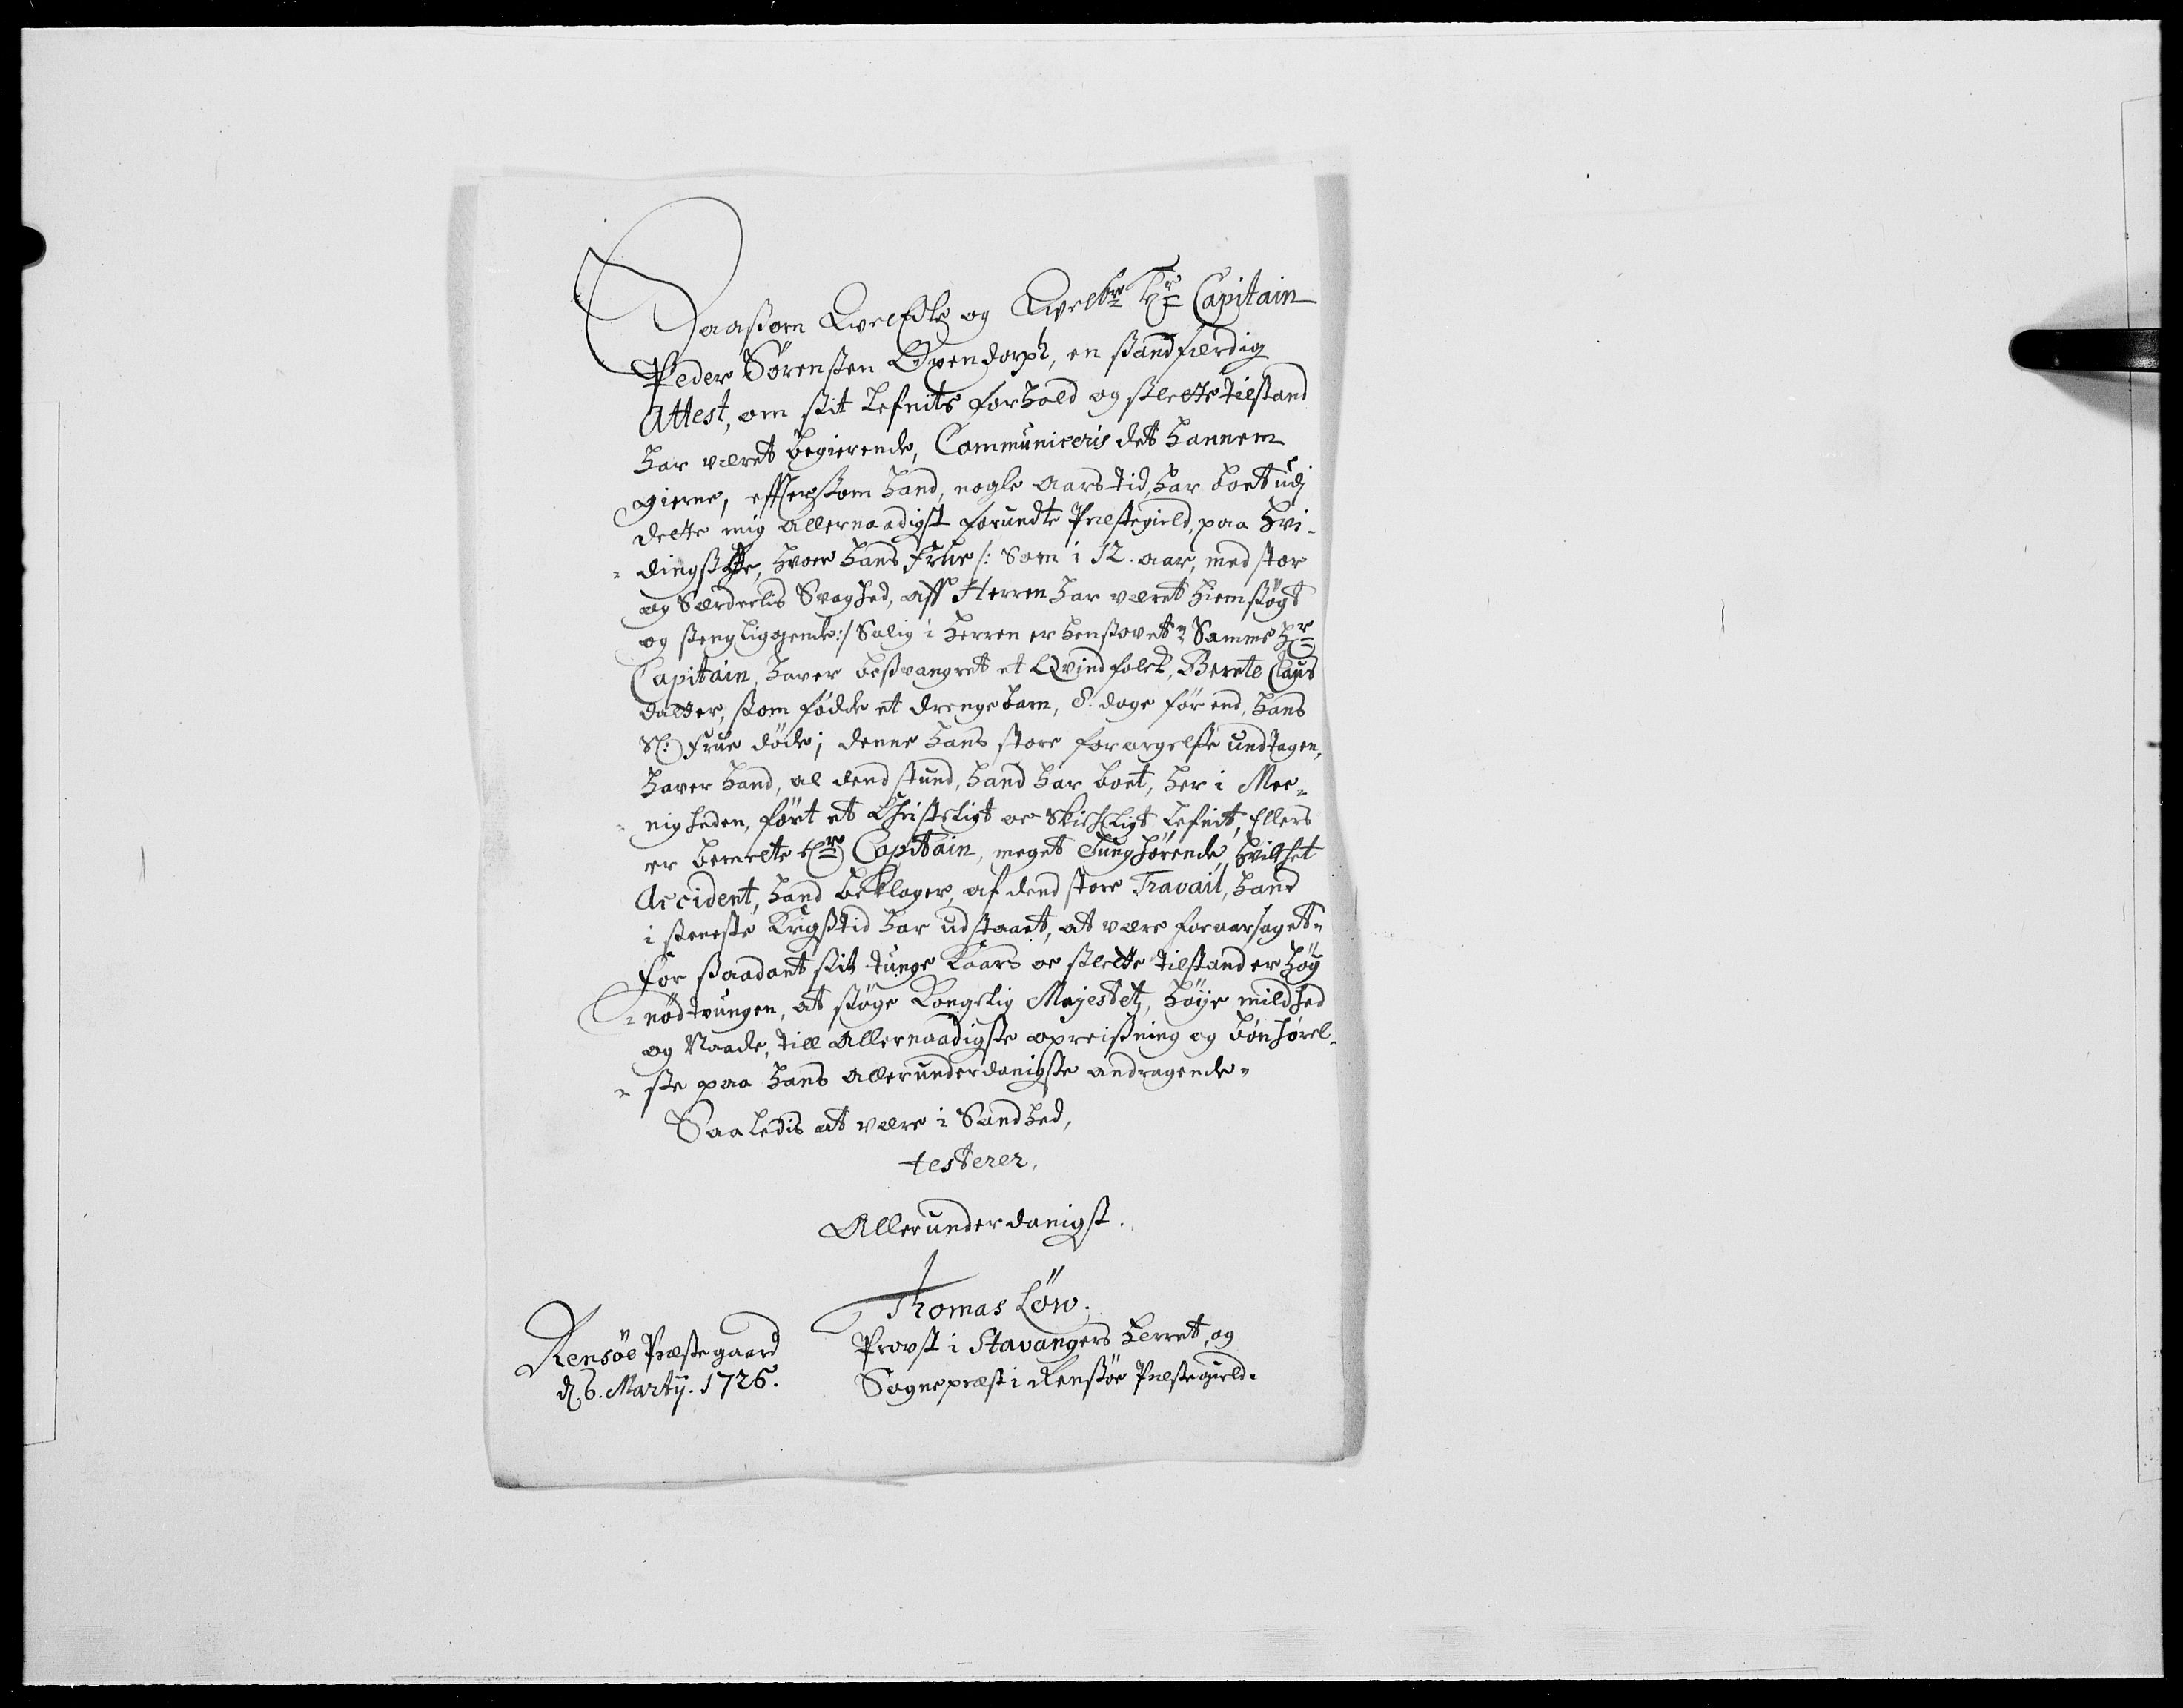 Saasom Welædle og Welbr Hr Capitain
Peder Sørensen Ovendorph, en sandferdig
Attest, om sit Lefnits forhold og slette tilstand
har været begierende, Communiceris det hannem
gierne, efftersom hand, nogle aars tid, har boet udj
dette mig allernaadigst forundte Præstegield, paa Hvi-
dingsøe, hvor hans Frue /: Som i 12. aar, med stor
og Særdeelis Svaghed, aff Herren har været hiemsøgt
og sengliggende :/ Salig i Herren er hensovet. Samme Hr
Capitain, haver besvangret et Qvindfolck, Berete Claus
datter, som fødde et drengebarn, 8. dage før end, hans
Sl: Frue døde; denne hans store forargelse undtagen,
haver hand, al dend stund, hand har boet, her i Mee-
nigheden, ført et Christeligt oc Skicheligt Lefnit, Ellers
er bemelte Hr Capitain, meget tunghørende, hvilchet
Accident, hand beklager, af dend store Travail, hand
i seneste Krigstid har udstaaet, at være foraarsaget.
For saadant sit tunge Kaars oc slette tilstand er høy
nødtrungen, at søge Kongelig Majestetz, høye mildhed
og Naade, till allernaadigste opreisning og bønhørel-
se paa hans allerunderdanigste andragende.
Saaledis at være i Sandhed,
testerer,
Allerunderdanigst.
Thomas Löw.
Provst i Stavangers Herret, og
Sognepræst i Rensøe Præstegield.
Rensöe Præstegaard
d. 6. Martij. 1726.